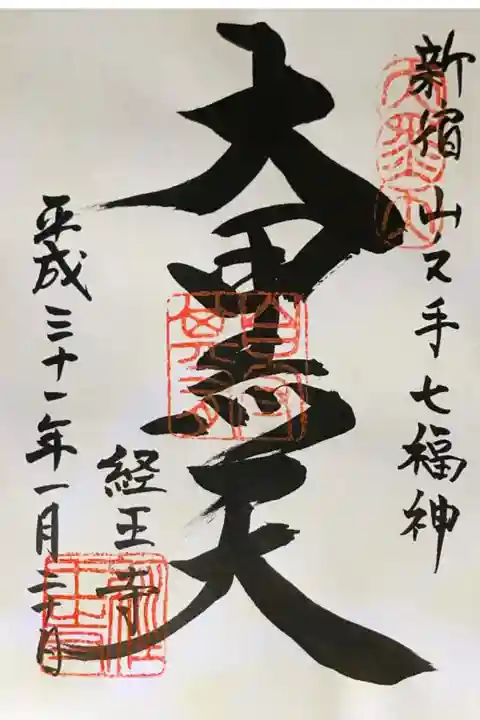 新宿山ノ手七福神
大黒天
経王寺
平成三十一年一月三十日